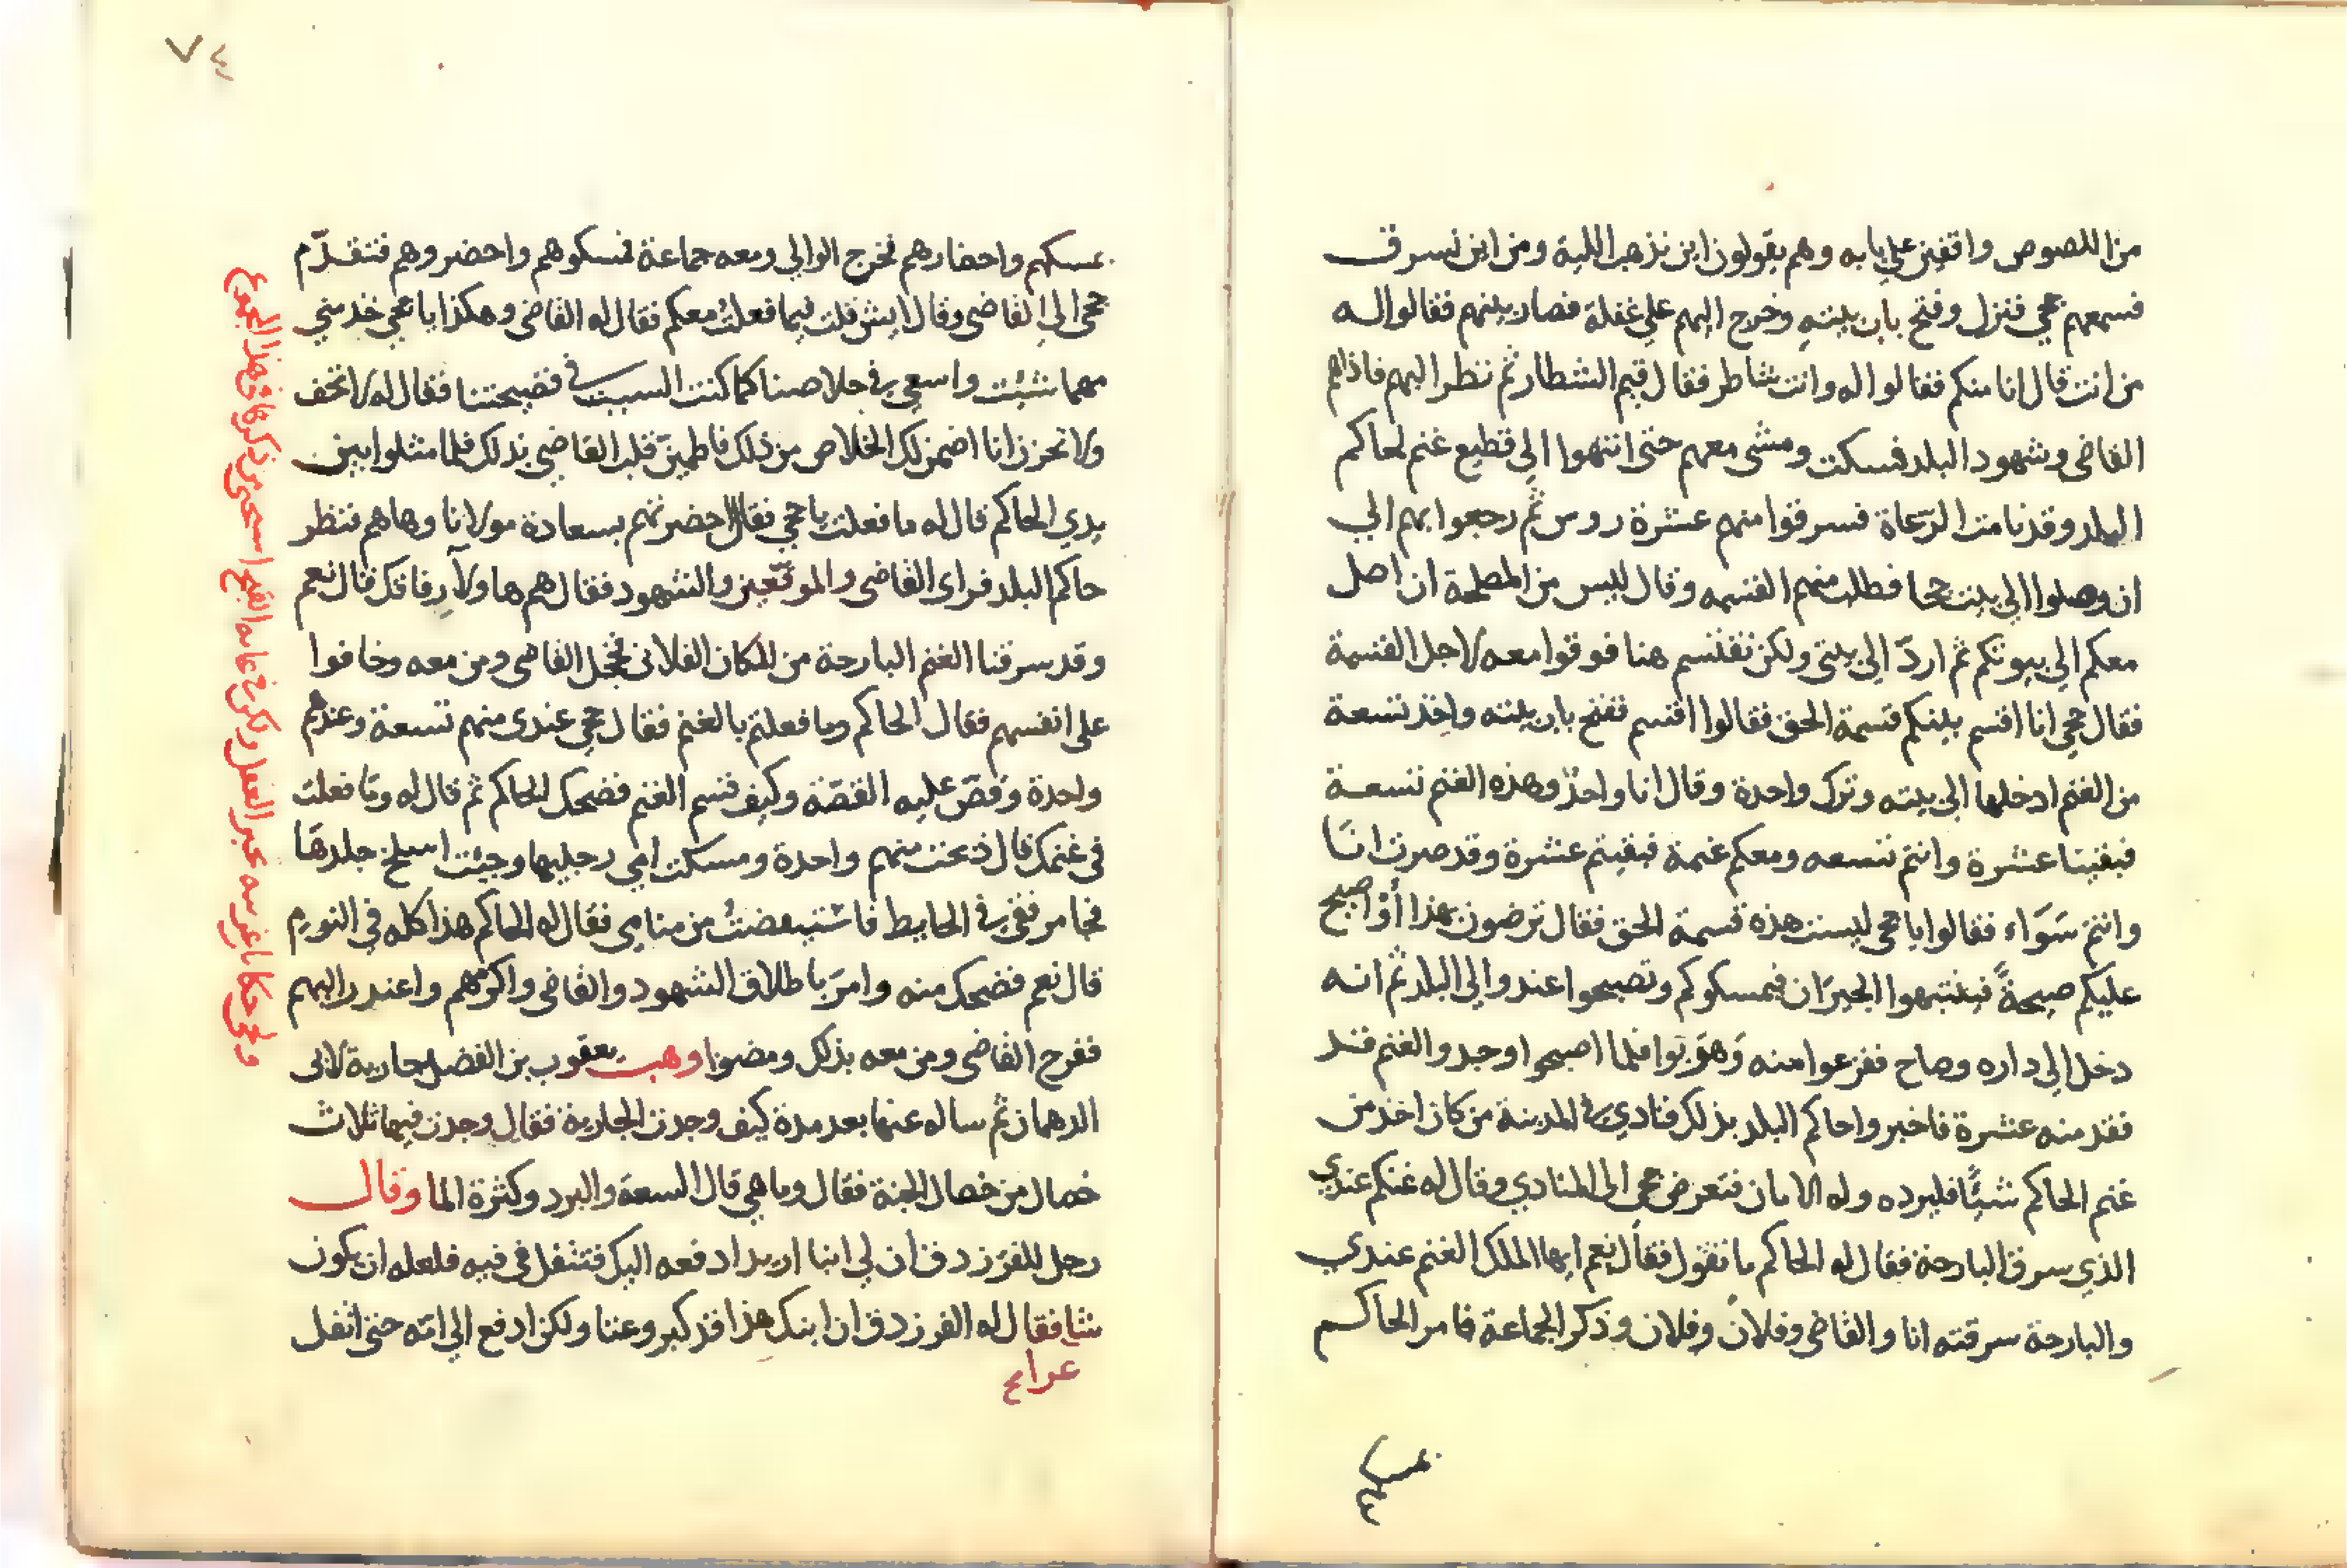 من اللصوص واقفين علي بابه وهم يقولون اين نذهب الليلة ومن اين نسرق
فسمعهم جحي فنزل وفتح باب بيته وخرج اليهم علي غفلة فصار بينهم فقالوا له
من انت قال انا منكم فقالوا له وانت شاطر فقال قيم الشطار ثم نظر اليهم فاذا هم
القاضي وشهود البلد فسكت ومشي معهم حتي انتهوا الي قطيع غنم لحاكم
البلد وقد نامت الرعاة فسرقوا منهم عشرة روس ثم رجعوا بهم الي
ان وصلوا الي بيت جحا فطلب منهم القسمه وقال ليس من المصلحة ان اصل
معكم الي بيوتكم ثم ارد الي بيتي ولكن نقتسم هنا فوقوا معه لاجل القسمة
فقال جحي انا اقسم بينكم قسمة الحق فقالوا اقسم ففتح باب بيته واخذ تسعة
من الغنم ادخلها الي بيته وترك واحدة وقال انا واحد وهذه الغنم تسعة
فبقينا عشرة وانتم تسعه ومعكم غنمة فبقيتم عشرة وقد صرت انا
وانتم سواء فقالوا يا جحي ليست هذه قسمة الحق فقال ترضون بهذا أو اصيح
عليكم صيحة فينتبهوا الجيران فيمسكوكم وتصبحوا عند والي البلد ثم انه
دخل الي داره وصاح ففزعوا منه وهربوا فلما اصبحوا وجدوا الغنم قد
فقد منه عشرة فاخبروا حاكم البلد بذلك فنادي في المدينة من كان اخذ من
غنم الحاكم شيئا فليرده وله الامان فتعرض جحي الي المنادي وقال له غنمكم عندي
الذي سرق البارحة فقال له الحاكم ما تقول فقال نعم ايها الملك الغنم عندي
والبارحة سرقته انا والقاضي وفلان وفلان وذكر الجماعة فامر الحاكم
٧٤
بمسكهم واحضارهم فخرج الوالي ومعه جماعة فمسكوهم واحضروهم فتقدم
جحي الي القاضي وقال ايش قلت فيما فعلت معكم فقال له القاضي وهكذا يا جحي خذ مني
مهما شئت واسعي في خلاصنا كما كنت السبب في فضيحتنا فقال له لا تخف
ولا تحزن انا اضمن لك الخلاص من ذلك فاطمين قلب القاضي بذلك فلما مثلوا بين
يدي الحاكم قال له ما فعلت يا جحي فقال احضرتهم بسعادة مولانا وها هم فنظر
حاكم البلد فراي القاضي والموقعين والشهود فقال لهم هاولاء رفاقك قال نعم
وقد سرقنا الغنم البارحة من المكان الفلاني فخجل القاضي ومن معه وخافوا
علي انفسهم فقال الحاكم وما فعلتم بالغنم فقال جحي عندي منهم تسعة وعندهم
واحدة وقص عليه القصة وكيف قسم الغنم فضحك الحاكم ثم قال له وما فعلت
في غنمك قال ذبحت منهم واحدة ومسكت امي رجليها وجيت اسلخ جلدها
فجا مرفقي في الحايط فاستيقضت من منامي فقال له الحاكم هذا كله في النوم
قال نعم فضحك منه وامر باطلاق الشهود والقاضي واكرمهم واعتذر اليهم
ففرح القاضي ومن معه بذلك ومضوا وهب يعقوب بن الفضل جارية لابي
الدهمان ثم ساله عنها بعد مدة كيف وجدت الجارية فقال وجدت فيها ثلاث
خصال من خصال الجنة فقال وما هي قال السعة والبرد وكثرة الما وقال
رجل للفرزدق ان لي ابنا اريد ادفعه اليك فتتفل في فيه فلعله ان يكون
شاعرا فقال له الفرزدق ان ابنك هذا قد كبر وعتا ولكن ادفع الي امه حتي اتفل